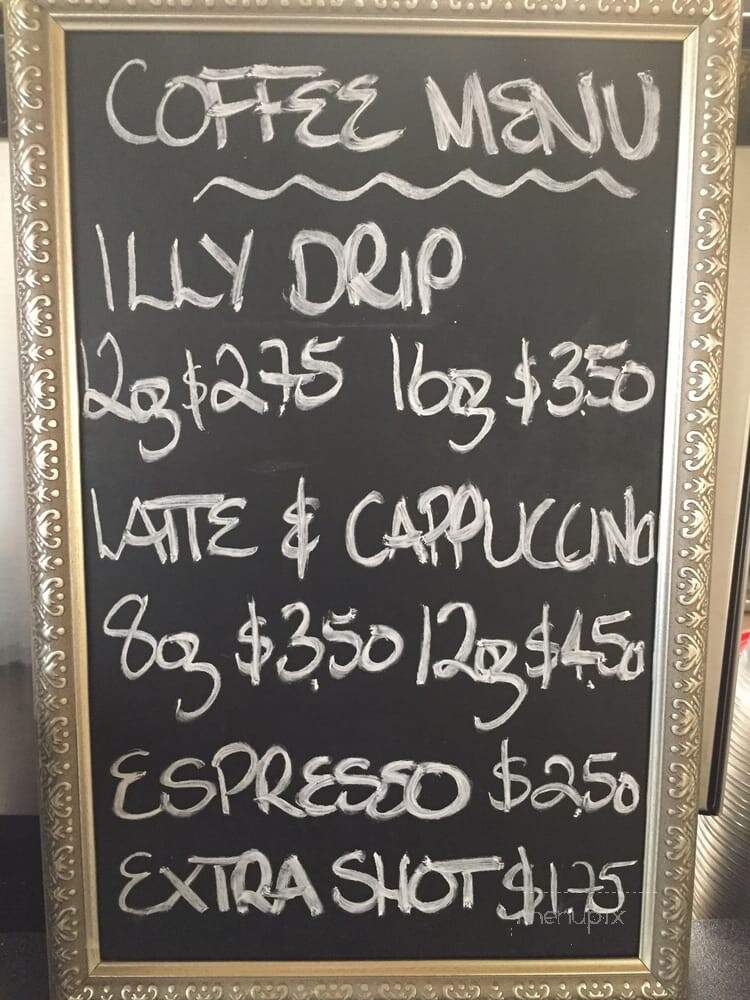 COFFEE MENU
ILLY DRIP
12oz $2.75 16oz $3.50
LATTE & CAPPUCCINO
8oz $3.50 12oz $4.50
ESPRESSO $2.50
EXTRA SHOT $1.75
menupix